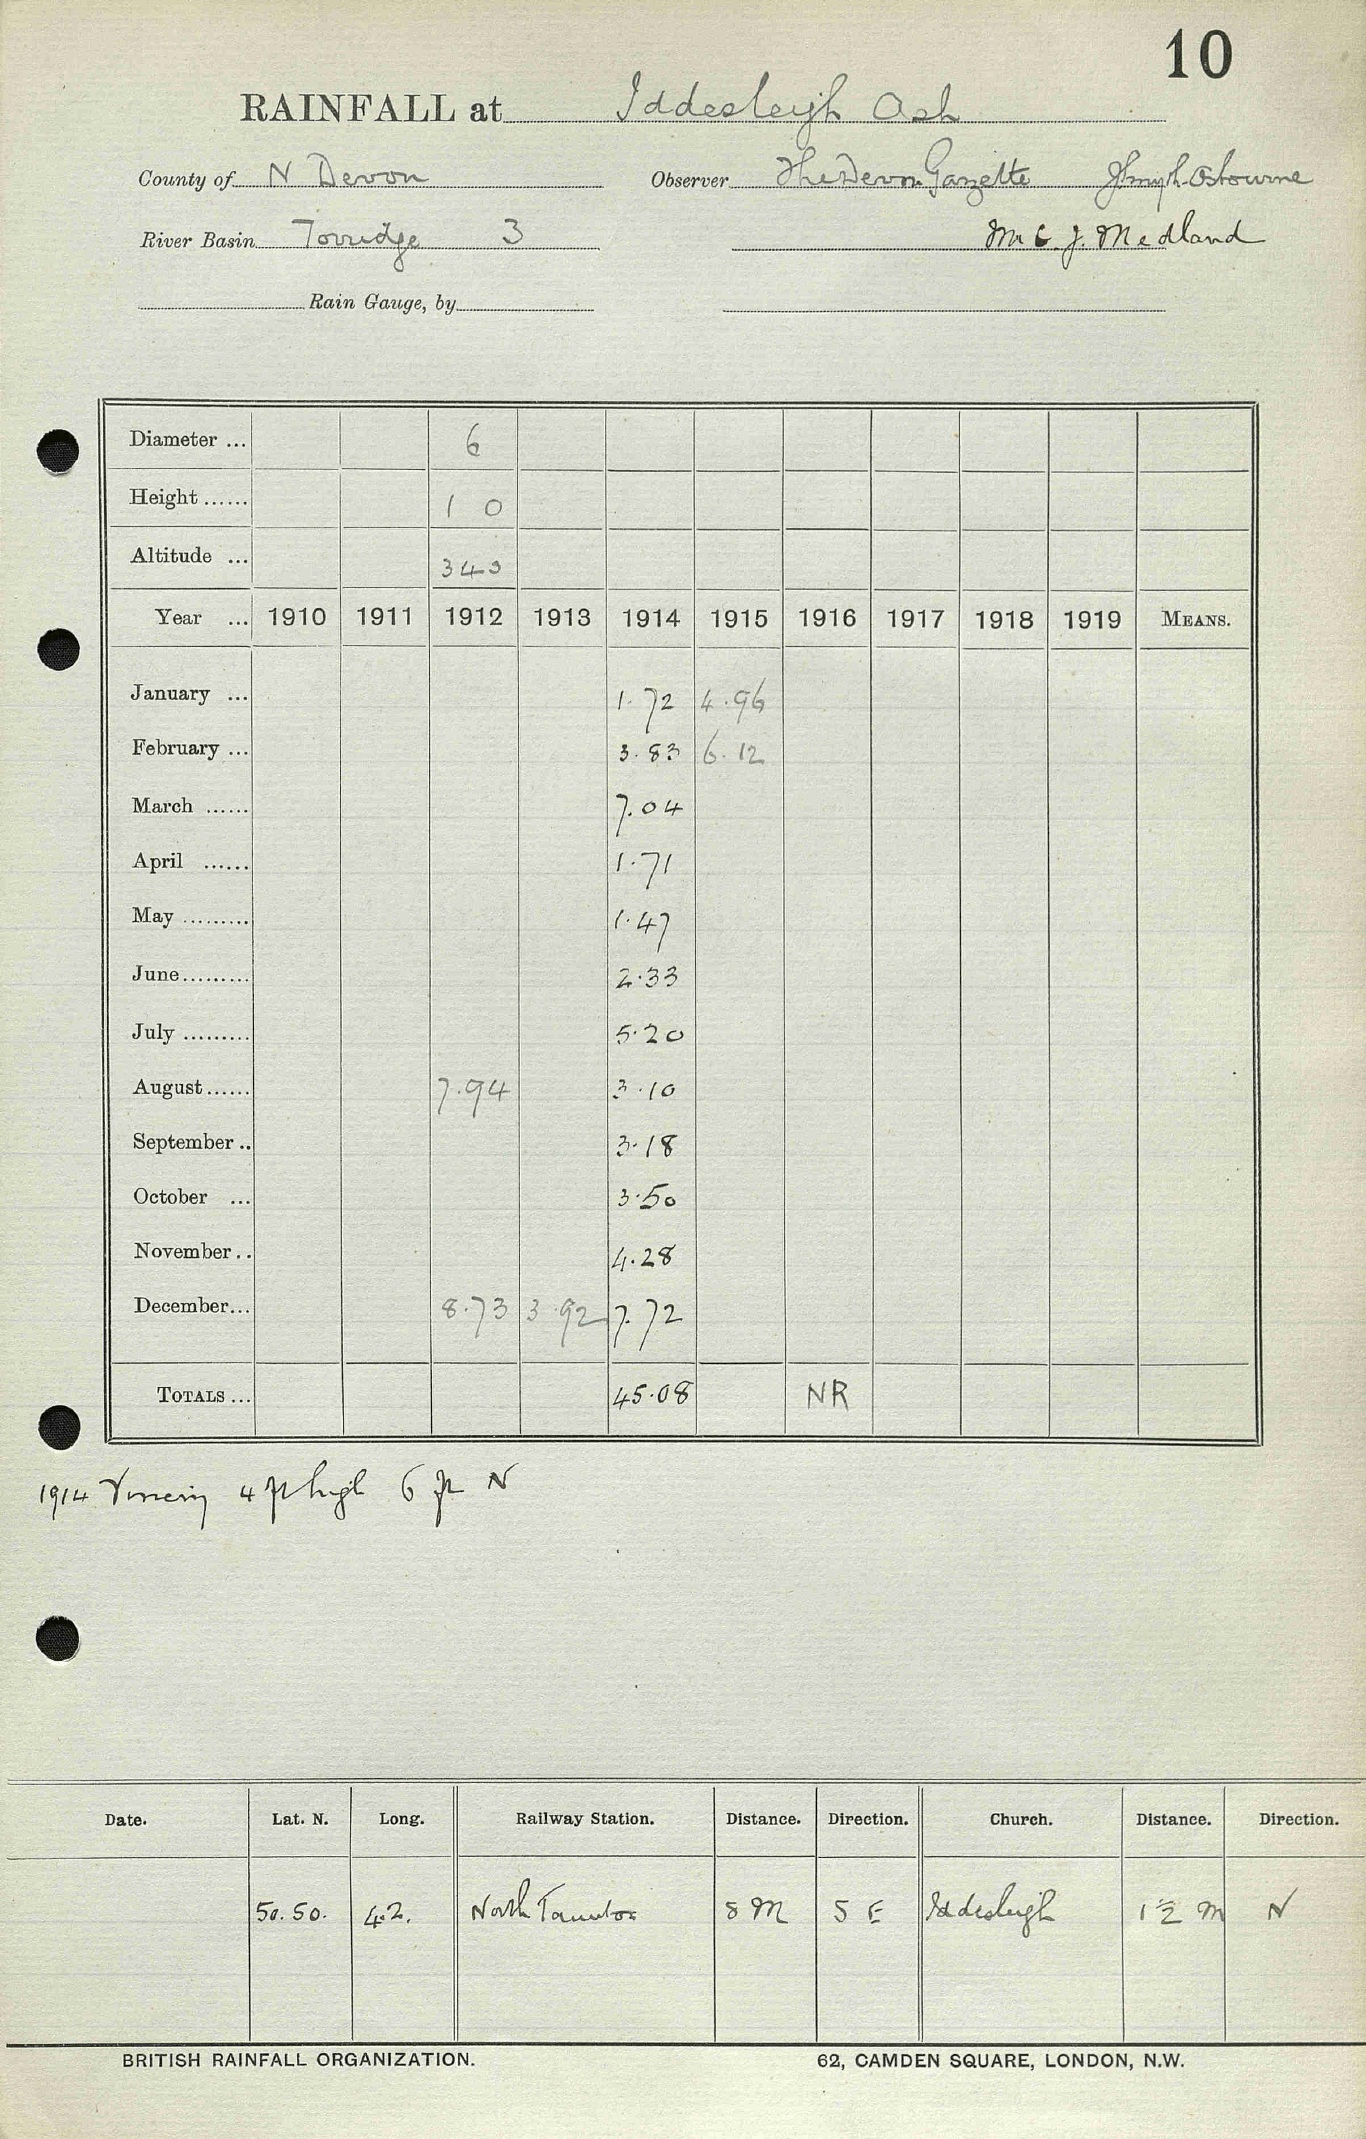 10
RAINFALL at Iddesleigh Ash
County of N Devon Observer The Devon Gazette J Smyth-Osbourne
River Basin Torridge 3 Mr C. J. Medland
Rain Gauge, by
Diameter ... 6
Height ...... 1 0
Altitude ... 343
Year ... 1910 1911 1912 1913 1914 1915 1916 1917 1918 1919 MEANS.
January ... 1.72 4.96
February ... 3.83 6.12
March ...... 7.04
April ...... 1.71
May ......... 1.47
June......... 2.33
July ......... 5.20
August...... 7.94 3.10
September .. 3.18
October ... 3.50
November .. 4.28
December... 8.73 3.92 7.72
TOTALS ... 45.08 NR
1914 Vinery 4 ft high 6 ft N
Date. Lat. N. Long. Railway Station. Distance. Direction. Church. Distance. Direction.
50.50. 4.2. North Tawton 8 M S E Iddesleigh 1½ M N
BRITISH RAINFALL ORGANIZATION. 62, CAMDEN SQUARE, LONDON, N.W.